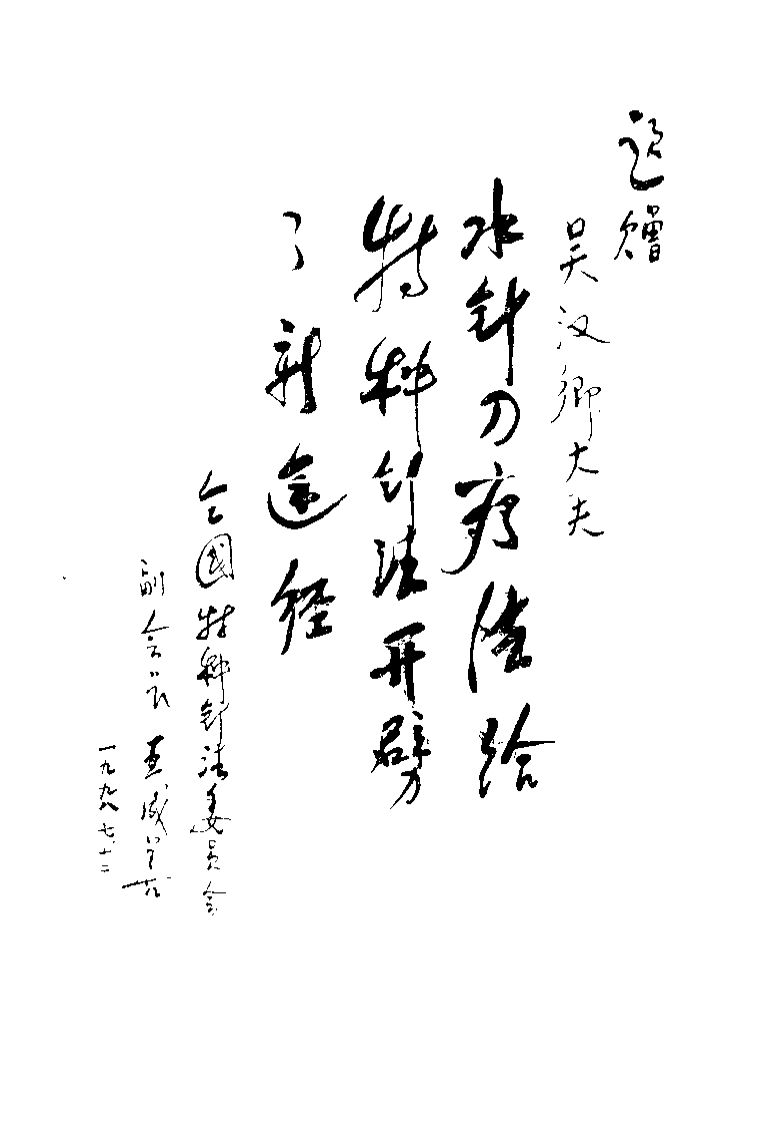 题赠
吴汉卿大夫
水针刀疗法给
特种针法开劈
了新途径
全國特种针法委员会
副会长 王成
一九九八 七 十二